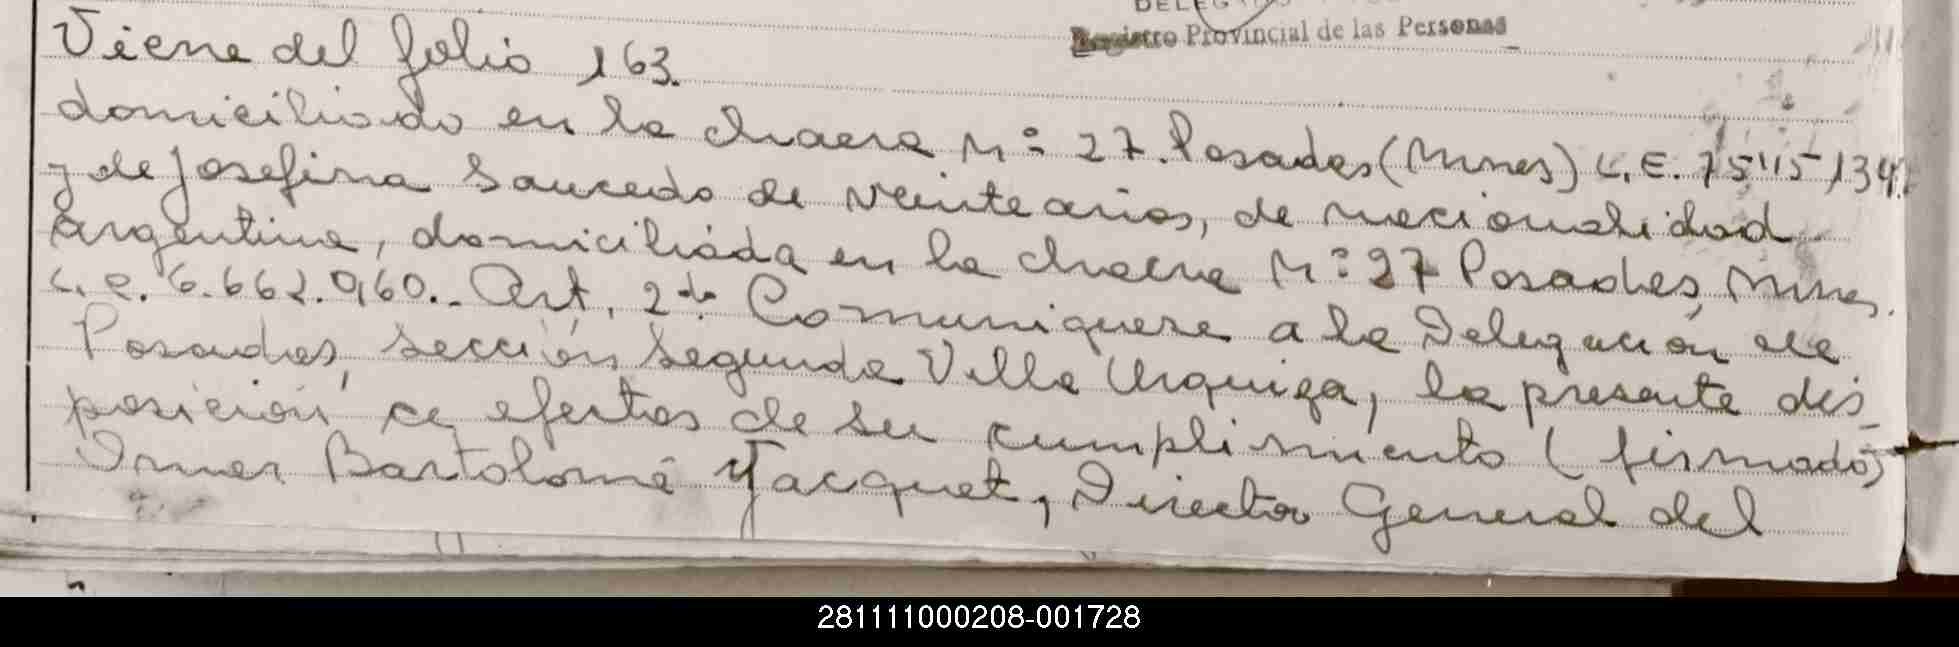 DELEG
Registro Provincial de las Personas
Viene del folio 163.
domiciliado en la chacra Nº 27. Posadas (Mnes) C.E. 7.515.134.
y de Josefina Saucedo de veinte años, de nacionalidad
argentina, domiciliada en la chacra Nº 27 Posadas, Mnes.
C.E. 6.662.960.- Art. 2do. Comuniquese a la Delegación de
Posadas, sección segunda Villa Urquiza, la presente dis
posición, a efectos de su cumplimiento (firmado)
Bartolomé Jacquet, Director General del
281111000208-001728